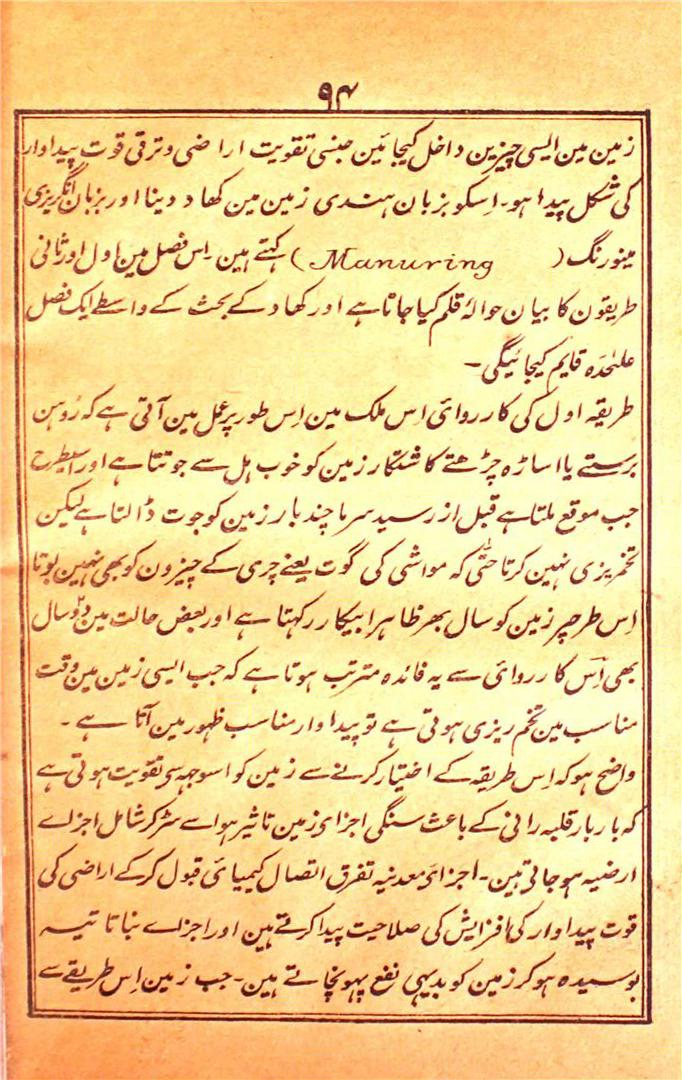 ۹۴
زمین مین ایسی چیزین داخل کیجائین جنسی تقویت اراضی و ترقی قوت پیداوار
کی شکل پیدا ہو۔ اِسکو بزبان ہندی زمین مین کھاد دینا اور بزبان انگریزی
مینورنگ (Manuring) کہتے ہین اِس فصل مین اول اور ثانی
طریقون کا بیان حوالۂ قلم کیا جاتا ہے اور کھاد کے بحث کے واسطے ایک فصل
علیٰحدہ قایم کیجائیگی۔
طریقہ اول کی کارروائی اِس ملک مین اِس طور پر عمل مین آتی ہے کہ رُوہن
برستے یا اساڑہ چڑھتے کاشتکار زمین کو خوب ہل سے جوتتا ہے اور اسیطرح
جب موقع ملتا ہے قبل از رسید سرما چند بار زمین کو جوت ڈالتا ہے لیکن
تخمریزی نہین کرتا حتّٰی کہ مواشی کی گوت یعنے چری کے چیزون کو بھی نہین بوتا
اِس طرحپر زمین کو سال بھر ظاہرا بیکار رکہتا ہے اور بعض حالت مین دو سال
بھی اِس کارروائی سے یہ فائدہ مترتب ہوتا ہے کہ جب ایسی زمین مین وقت
مناسب مین تخم ریزی ہوتی ہے تو پیداوار مناسب ظہور مین آتا ہے۔
واضح ہو کہ اِس طریقہ کے اختیار کرنے سے زمین کو اسوجہ سی تقویت ہوتی ہے
کہ بار بار قلبہ رانی کے باعث سنگی اجزای زمین تاثیر ہوا سے سڑ کر شامل اجزاے
ارضیہ ہو جاتی ہین۔ اجزاے معدنیہ تفرق اتصال کیمیائی قبول کرکے اراضی کی
قوت پیداوار کی افزایش کی صلاحیت پیدا کرتے ہین اور اجزاے نباتاتیہ
بوسیدہ ہو کر زمین کو بدیہی نفع پہونچاتے ہین۔ جب زمین اِس طریقے سے